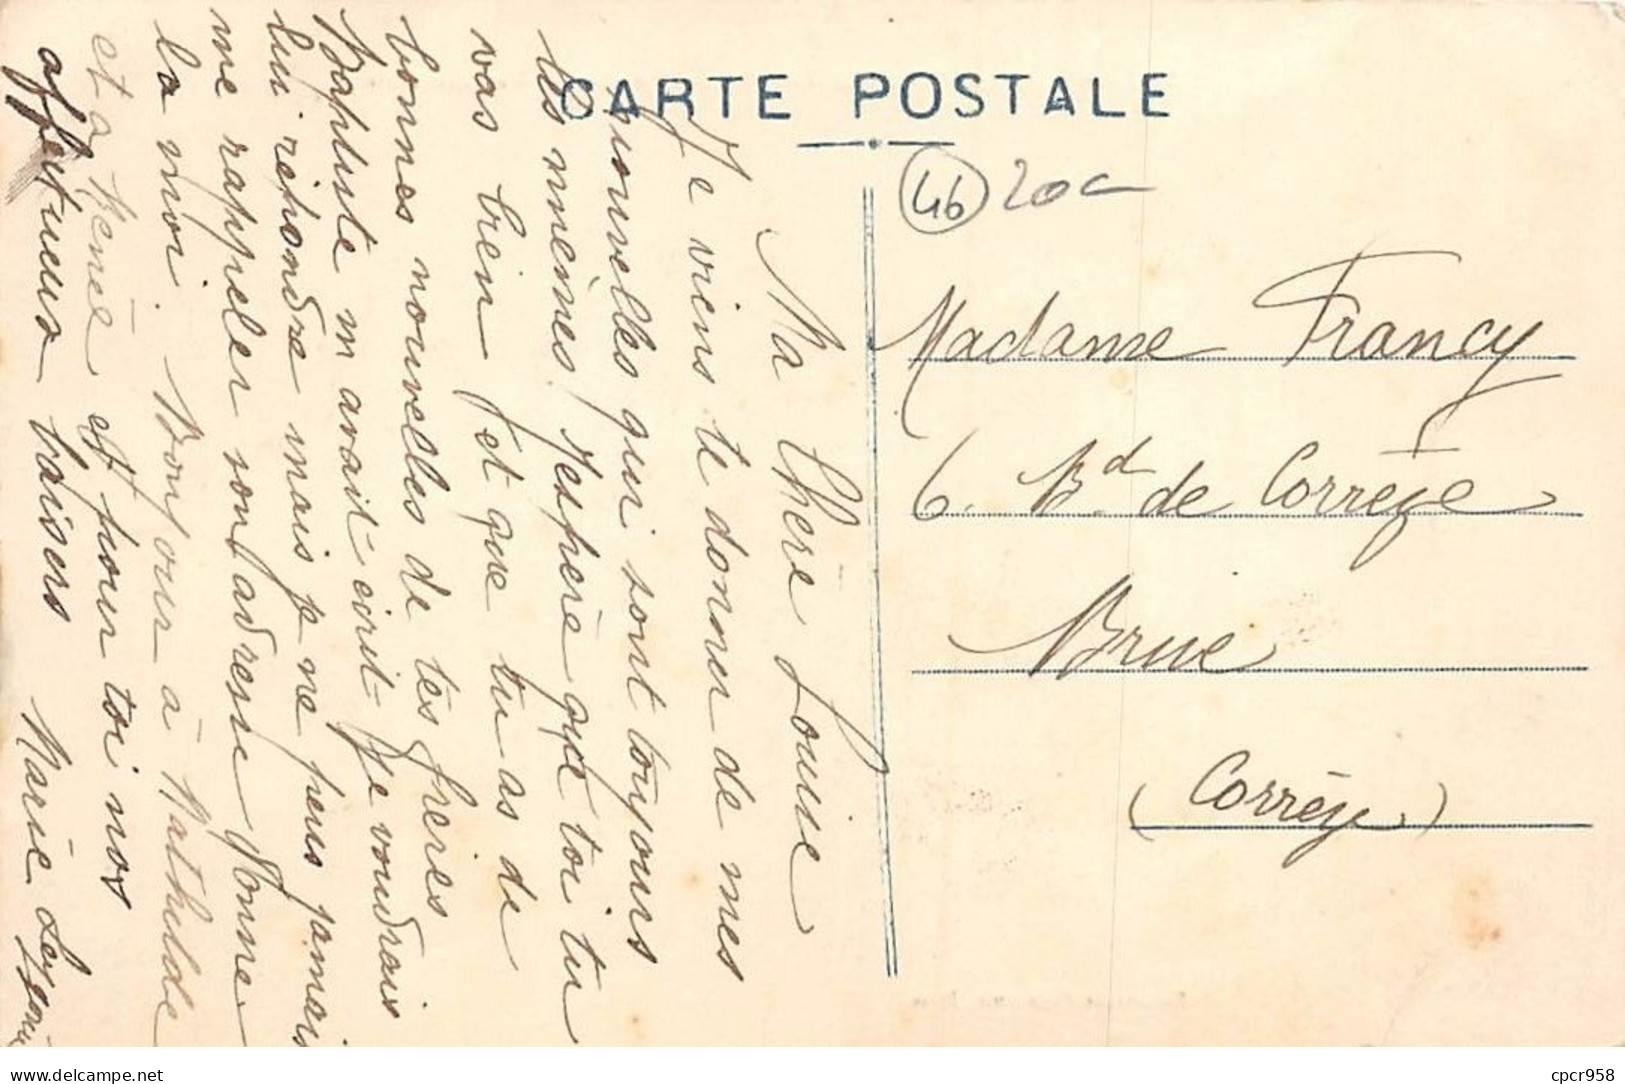 CARTE POSTALE
46 20c
Ma Chère Louise
Je viens te donner de mes
nouvelles qui sont toujours
les mêmes J'espère que toi tu
vas bien et que tu as de
bonnes nouvelles de tes frères
Baptiste m avait écrit Je voudrais
lui répondre mais je ne peus jamais
me rappeler son adresse donne
la moi. Bonjour à Mathilde
et a Rémée et pour toi nos
affectueux baisers Marie
Madame Francy
6. Bd de Corrèze
Brive
(Corrèze)
delcampe.net
cpcr958